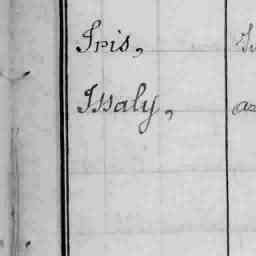 Iris,
Issaly,